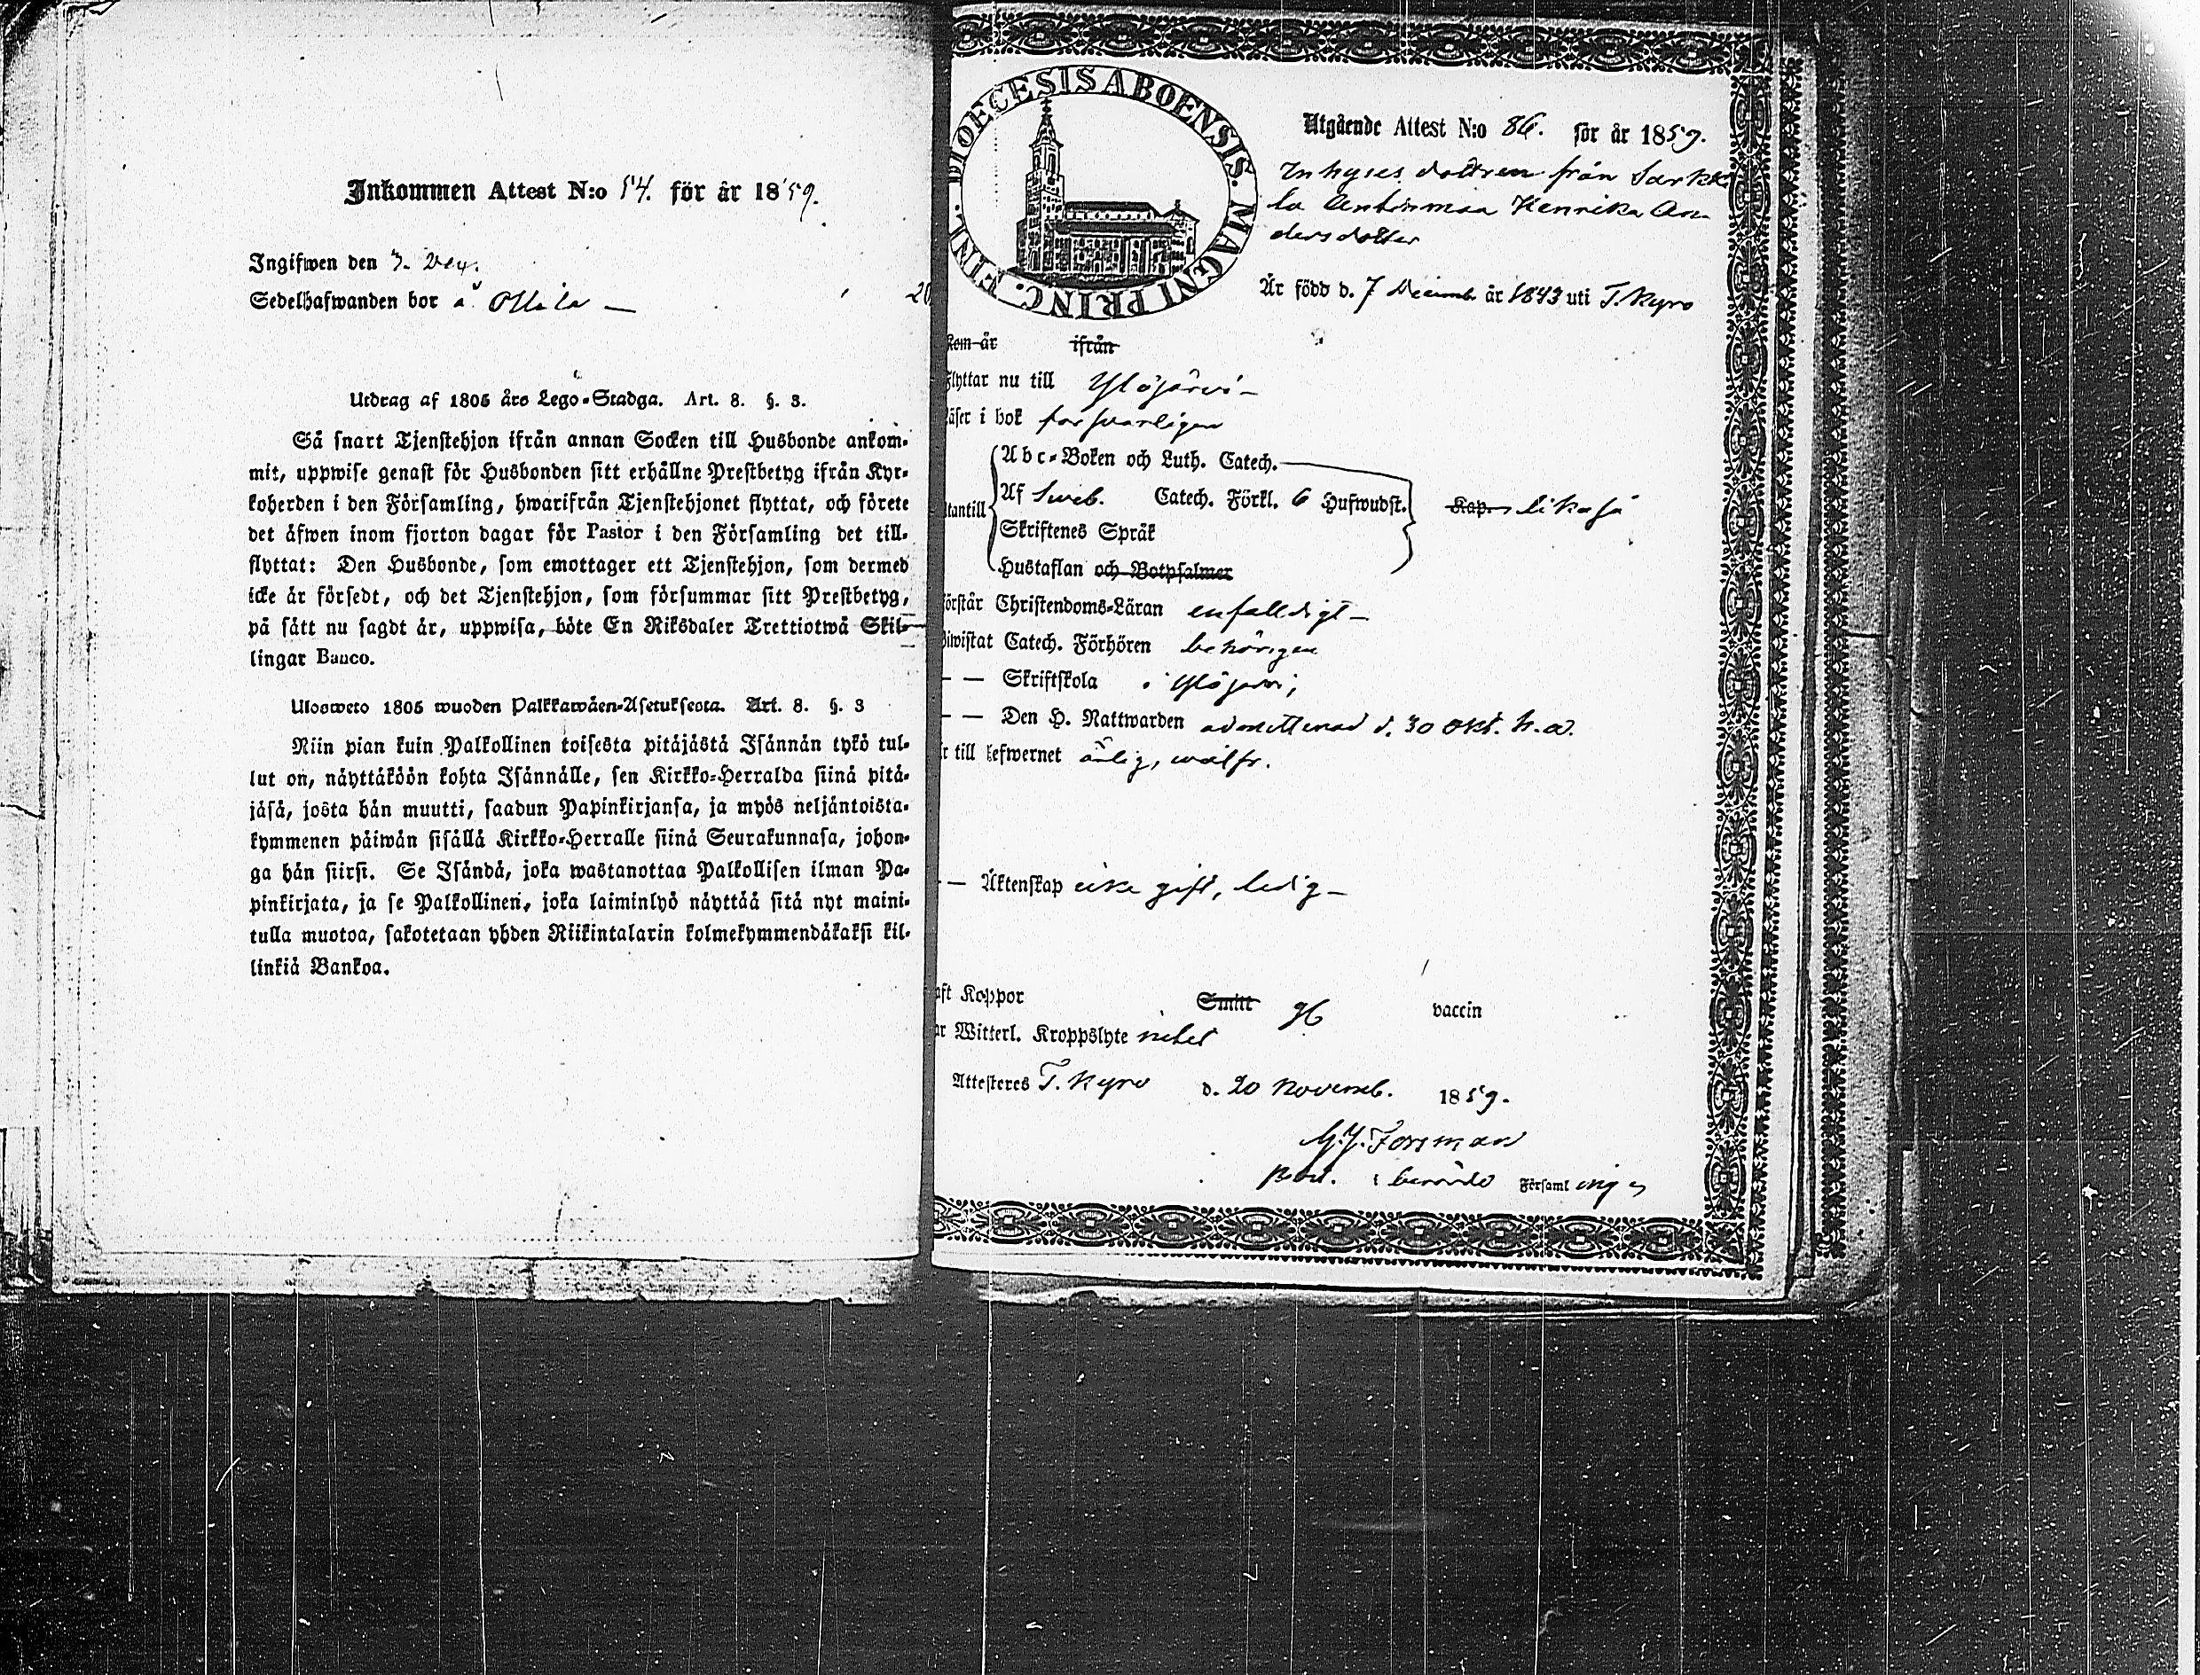 Inkommen Attest N:o 54. för år 1859.
Ingifwen den 3. Dec.
Sedelhafwanden bor å Ollila —
Utdrag af 1805 års Lego-Stadga. Art. 8. §. 3.
Så snart Tjenstehjon ifrån annan Socken till Husbonde ankom-
mit, uppwise genast för Husbonden sitt erhållne Prestbetyg ifrån Kyr-
koherden i den Församling, hwarifrån Tjenstehjonet flyttat, och förete
det äfwen inom fjorton dagar för Pastor i den Församling det till-
flyttat: Den Husbonde, som emottager ett Tjenstehjon, som dermed
icke är försedt, och det Tjenstehjon, som försummar sitt Prestbetyg,
på sätt nu sagdt är, uppwisa, böte En Riksdaler Trettiotwå Skil-
lingar Banco.
Ulosweto 1805 wuoden Palkkawäen-Asetuksesta. Art. 8. §. 3
Niin pian kuin Palkollinen toisesta pitäjästä Isännän tykö tul-
lut on, näyttäköön kohta Isännälle, sen Kirkko-Herralda siinä pitä-
jäsä, josta hän muutti, saadun Papinkirjansa, ja myös neljäntoista-
kymmenen päiwän sisällä Kirkko-Herralle siinä Seurakunnasa, johon-
ga hän siirsi. Se Isändä, joka wastanottaa Palkollisen ilman Pa-
pinkirjata, ja se Palkollinen, joka laiminlyö näyttää sitä nyt maini-
tulla muotoa, sakotetaan yhden Riikintalarin kolmekymmendäkaksi kil-
linkiä Bankoa.
DIOECESIS ABOENSIS. MAGNI PRINC. FINL.
Utgående Attest N:o 86. för år 1859.
Inhyses dottren från Sarkki
la Henrika An
dersdotter
Är född d. 7 Decemb. år 1843 uti T. Kyro
kom år ifrån
flyttar nu till Ylöjärvi —
läser i bok försvarligen
Abc-Boken och Luth. Catech.
Af Sweb. Catech. Förkl. 6 Hufwudst. likaså
utantill
Skriftenes Språk
Hustaflan och Botpsalmer
förstår Christendoms-Läran enfaldigt —
biwistat Catech. Förhören behörigen
— — Skriftskola i Ylöjärvi,
— — Den H. Nattwarden admitterad d. 30 Okt. h.a.
är till Lefwernet ärlig, wälfr.
— — Äktenskap icke gift, ledig —
haft Koppor Smitt vaccin
har Witterl. Kroppslyte intet
Attesteres T. Kyro d. 20 Novemb. 1859.
G. J. Forsman
i berörde Församlingen